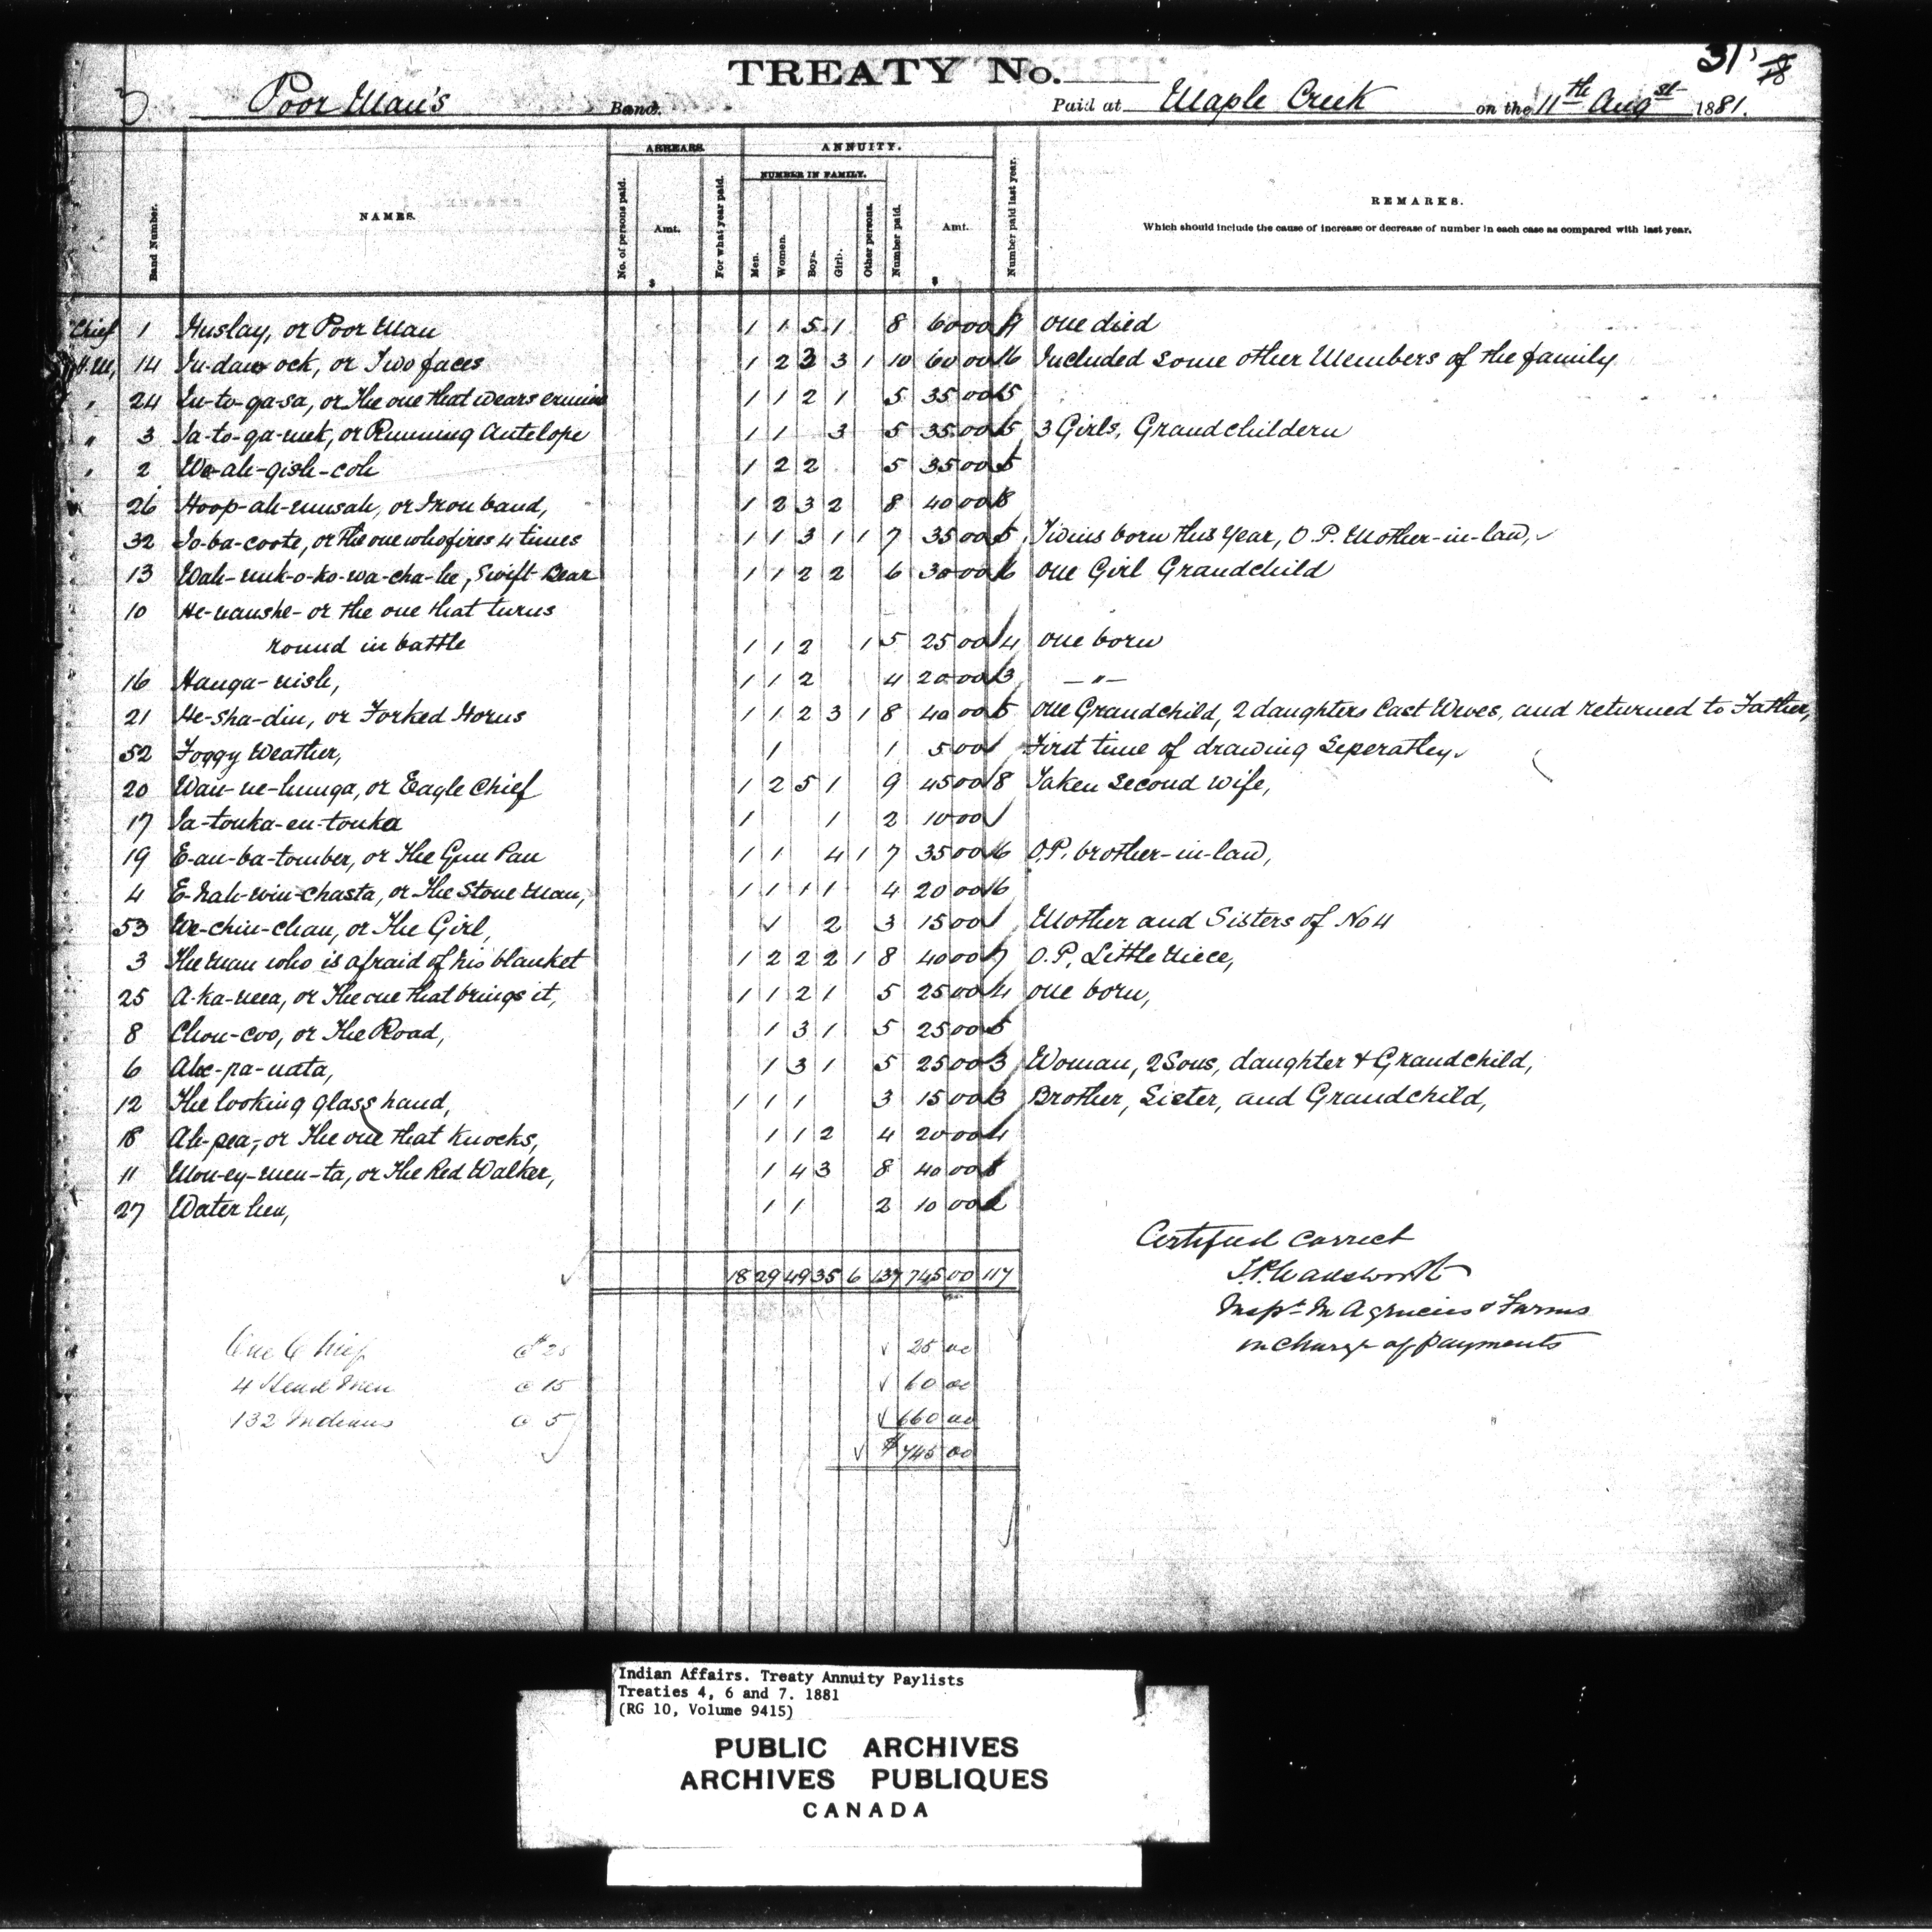 31 18
TREATY No.
Poor Man's Band. Paid at Maple Creek on the 11th Augst 1881.
ARREARS. ANNUITY.
NUMBER IN FAMILY.
Band Number. NAMES. No. of persons paid. Amt. $ For what year paid. Men. Women. Boys. Girls. Other persons. Number paid. Amt. $ Number paid last year. REMARKS.
Which should include the cause of increase or decrease of number in each case as compared with last year.
Chief 1 Huslay, or Poor Man 1 1 5 1 8 60 00 9 one died
H.M. 14 In-daw ock, or Two faces 1 2 3 3 1 10 60 00 16 Included some other Members of the family
" 24 In-to-ga-sa, or The one that wears ermine 1 1 2 1 5 35 00 5
" 3 Ta-to-ga-nek, or Running Antelope 1 1 3 5 35 00 5 3 Girls, Grandchildern
" 2 We-ah-gish-coh 1 2 2 5 35 00 5
26 Hoop-ah-musah, or Iron band, 1 2 3 2 8 40 00 8
32 To-ba-coote, or The one who fires 4 times 1 1 3 1 1 7 35 00 5 Twins born this Year, O.P. Mother-in-law,
13 Wah-muk-o-ko-wa-cha-he, Swift Bear 1 1 2 2 6 30 00 6 one Girl Grandchild
10 He-nanshe- or the one that turns
round in battle 1 1 2 1 5 25 00 4 one born
16 Hanga-nish, 1 1 2 4 20 00 3 — " —
21 He-sha-din, or Forked Horns 1 1 2 3 1 8 40 00 5 one Grandchild, 2 daughters Cast Wives, and returned to Father,
52 Foggy Weather, 1 1 5 00 First time of drawing Seperatley
20 Wan-ne-hunga, or Eagle Chief 1 2 5 1 9 45 00 8 Taken Second wife,
17 Ta-tonka-en-tonka 1 1 2 10 00
19 E-an-ba-tomber, or The Gun Pan 1 1 4 1 7 35 00 6 O.P. brother-in-law,
4 E-hah-win-chasta, or The Stone Man, 1 1 1 1 4 20 00 6
53 We-chin-chan, or The Girl, 2 3 15 00 Mother and Sisters of No 4
3 The Man who is afraid of his blanket 1 2 2 2 1 8 40 00 7 O.P. Little Niece,
25 A-ka-neea, or The one that brings it, 1 1 2 1 5 25 00 4 one born,
8 Chon-coo, or The Road, 1 3 1 5 25 00 5
6 Ahe-pa-nata, 1 3 1 5 25 00 3 Woman, 2 Sons, daughter & Grandchild,
12 The looking glass hand, 1 1 1 3 15 00 3 Brother, Sister, and Grandchild,
18 Ah-pea, or The one that Knocks, 1 1 2 4 20 00 4
11 Mon-ey-men-ta, or The Red Walker, 1 4 3 8 40 00 8
27 Water hen, 1 1 2 10 00 2
18 29 49 35 6 137 745 00 117
Certified Correct
T.P. Wadsworth
Inspt In Agencies & Farms
in charge of payments
One Chief @ $25 25 00
4 Head Men @ 15 60 00
132 Indians @ 5 660 00
$745 00
Indian Affairs. Treaty Annuity Paylists
Treaties 4, 6 and 7. 1881
(RG 10, Volume 9415)
PUBLIC ARCHIVES
ARCHIVES PUBLIQUES
CANADA